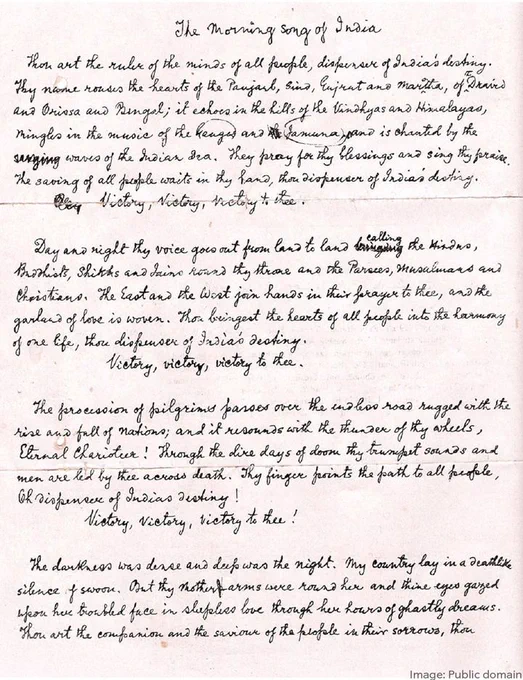 The Morning Song of India
Thou art the ruler of the minds of all people, dispenser of India's destiny.
Thy name rouses the hearts of the Panjarl, Sind, Gujrat and Maratta, of Dravid
and Orissa and Bengal; it echoes in the hills of the Vindhyas and Himalayas,
mingles in the music of the Ganges and Jamuna, and is chanted by the
waves of the Indian Sea. They pray for thy blessings and sing thy praise.
The saving of all people waits in thy hand, thou dispenser of India's destiny.
Victory, Victory, Victory to thee.
Day and night thy voice goes out from land to land calling the Hindus,
Buddhists, Shikhs and Jains round thy throne and the Parsees, Musulmans and
Christians. The East and the West join hands in their prayer to thee, and the
garland of love is woven. Thou bringest the hearts of all people into the harmony
of one life, thou dispenser of India's destiny.
Victory, victory, victory to thee.
The procession of pilgrims passes over the endless road rugged with the
rise and fall of nations; and it resounds with the thunder of thy wheels,
Eternal Charioteer! Through the dire days of doom thy trumpet sounds and
men are led by thee across death. Thy finger points the path to all people,
Oh dispenser of Indias destiny!
Victory, Victory, Victory to thee!
The darkness was dense and deep was the night. My country lay in a deathlike
silence of swoon. But thy mother arms were round her and thine eyes gazed
upon her troubled face in sleepless love through her hours of ghastly dreams.
Thou art the companion and the saviour of the people in their sorrows, thou
Image: Public domain